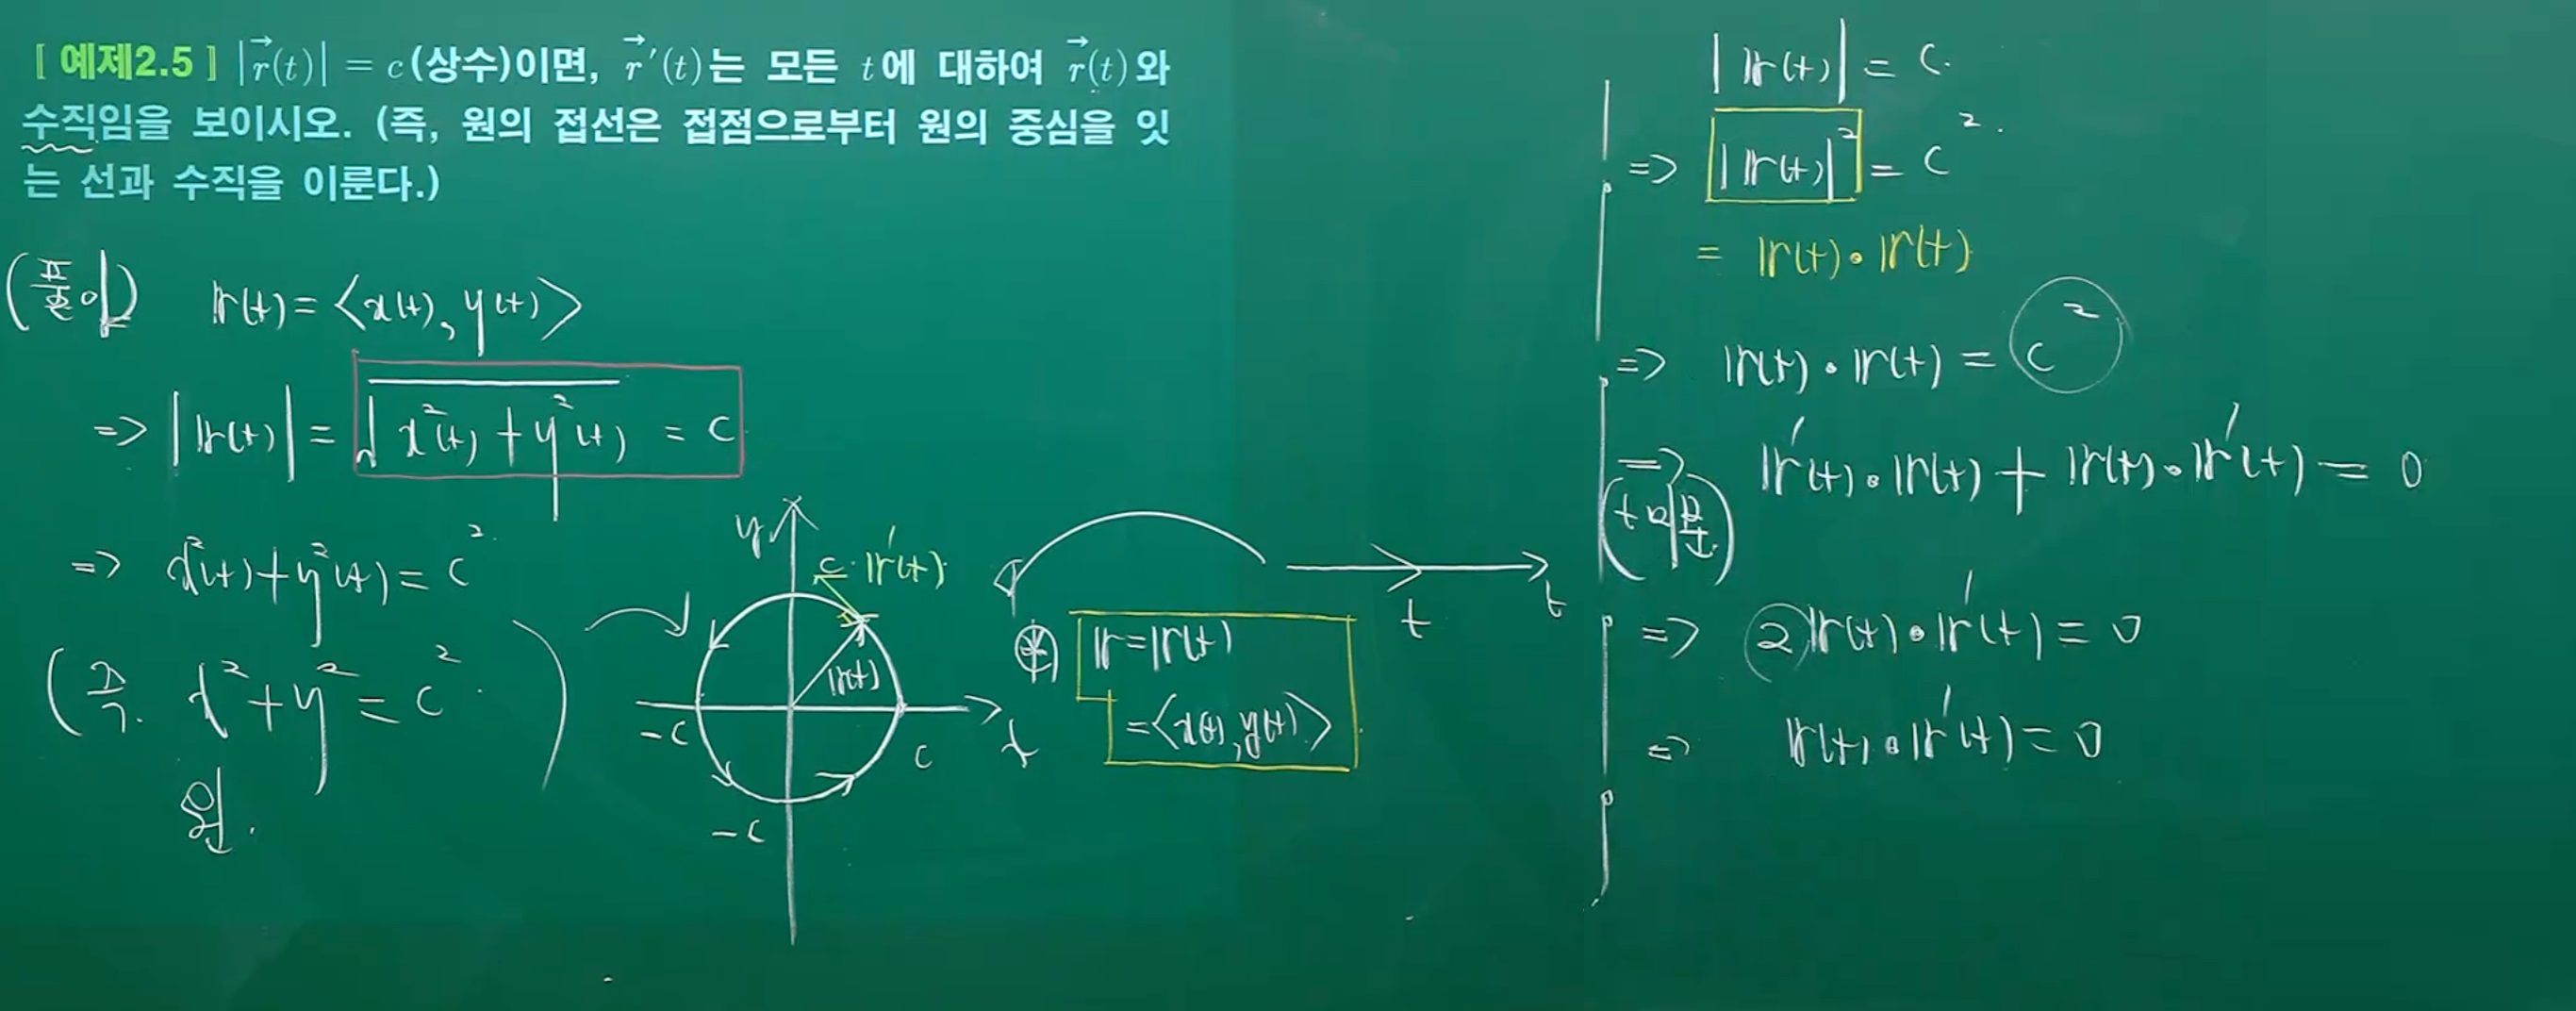 [ 예제2.5 ] |r⃗(t)| = c (상수)이면, r⃗ ′(t)는 모든 t에 대하여 r⃗(t)와
수직임을 보이시오. (즉, 원의 접선은 접점으로부터 원의 중심을 잇
는 선과 수직을 이룬다.)
(풀이) 𝕣(t) = <x(t), y(t)>
=> |𝕣(t)| = √(x²(t) + y²(t)) = c
=> x²(t) + y²(t) = c².
(즉. x² + y² = c².)
원.
y
c 𝕣′(t)
𝕣(t)
-c
c
x
-c
t
t
⊛ 𝕣 = 𝕣(t)
= <x(t), y(t)>
|𝕣(t)| = c.
=> |𝕣(t)|² = c².
= 𝕣(t) • 𝕣(t)
=> 𝕣(t) • 𝕣(t) = c²
=> (t미분) 𝕣′(t) • 𝕣(t) + 𝕣(t) • 𝕣′(t) = 0
=> 2𝕣(t) • 𝕣′(t) = 0
=> 𝕣(t) • 𝕣′(t) = 0